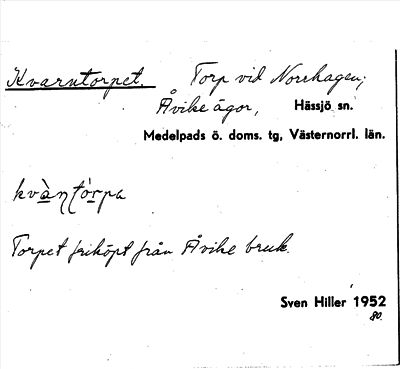 Kvarntorpet. Torp vid Norrhagen;
Åvike ägor, Hässjö sn.
Medelpads ö. doms. tg, Västernorrl. län.
kvàṇtò̩rpa
Torpet friköpt från Åvike bruk.
Sven Hiller 1952
80.